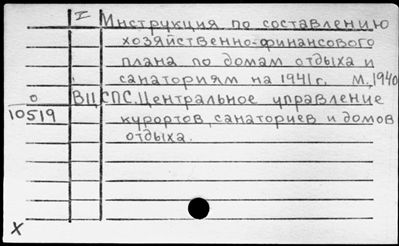 I Инструкция по составлению
хозяйственно-финансового
плана по домам отдыха и
санаториям на 1941 г. М., 1940
О ВЦСПС. Центральное управление
10519 курортов, санаториев и домов
отдыха.
X